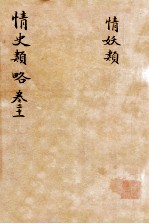 情妖類
情史類略卷二十一